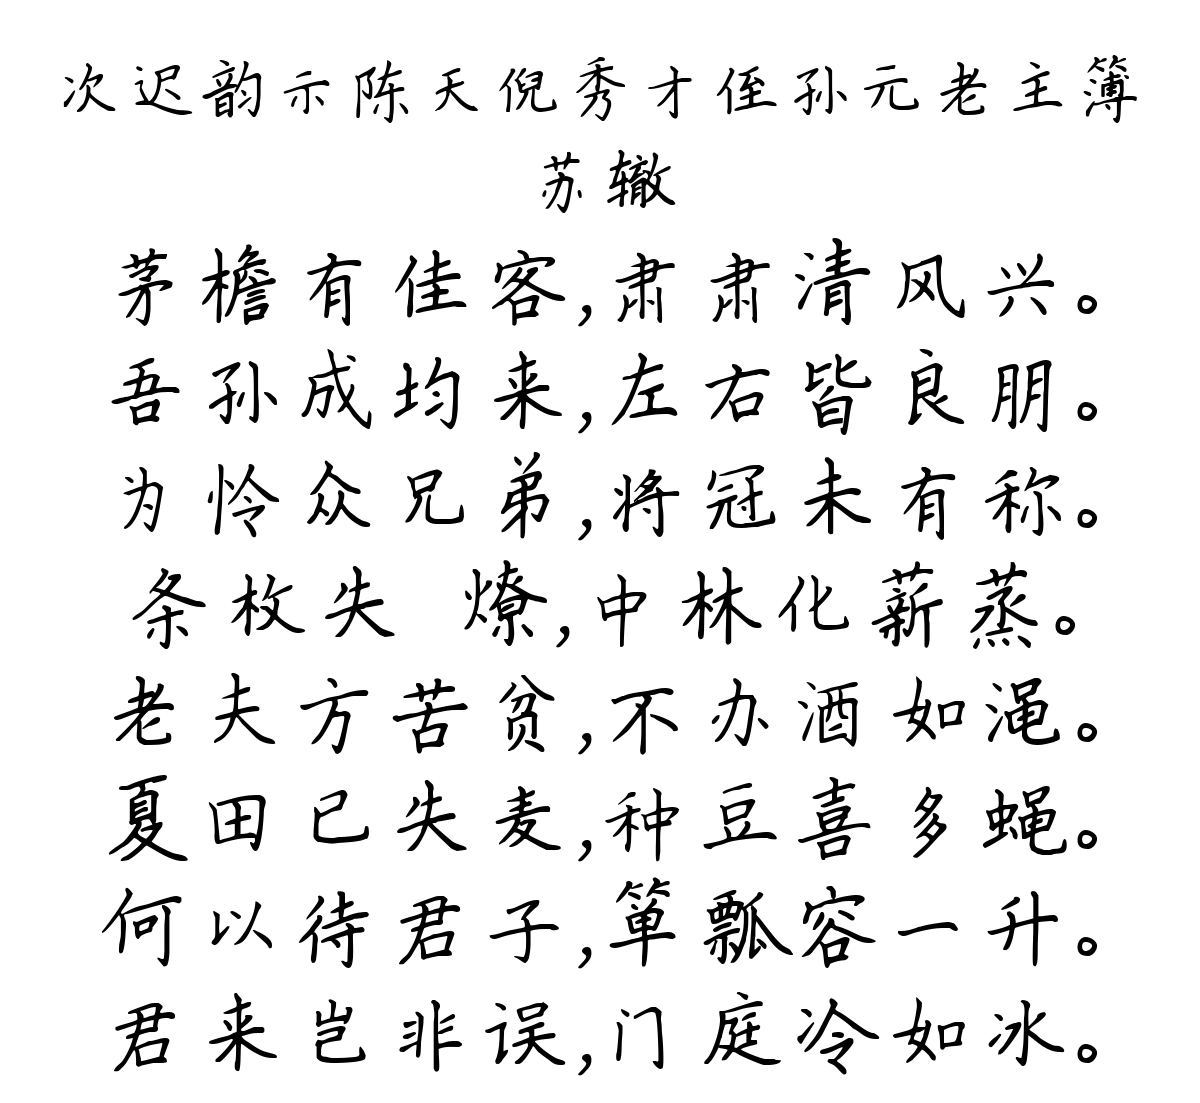 次迟韵示陈天倪秀才侄孙元老主簿
苏辙
茅檐有佳客,肃肃清风兴。
吾孙成均来,左右皆良朋。
为怜众兄弟,将冠未有称。
条枚失 燎,中林化薪蒸。
老夫方苦贫,不办酒如渑。
夏田已失麦,种豆喜多蝇。
何以待君子,箪瓢容一升。
君来岂非误,门庭冷如冰。